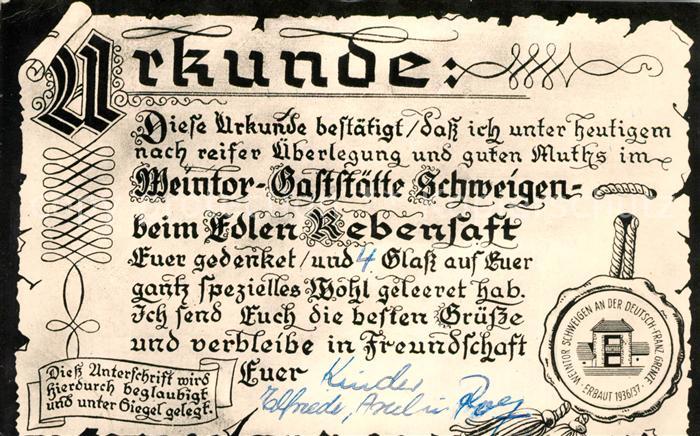 Urkunde:
Diese Urkunde bestätigt/daß ich unter heutigem
nach reifer Überlegung und guten Muths im
Weintor-Gaststätte Schweigen-
beim Edlen Rebensaft
Euer gedenket/und 4 Glaß auf Euer
gantz spezielles Wohl geleeret hab.
Ich send Euch die besten Grüße
und verbleibe in Freundschaft
Euer Kinder
Elfriede,
Dieß Unterschrift wird
hierdurch beglaubigt
und unter Siegel gelegt.
WEINTOR SCHWEIGEN AN DER DEUTSCH-FRANZ. GRENZE
· ERBAUT 1936/37 ·